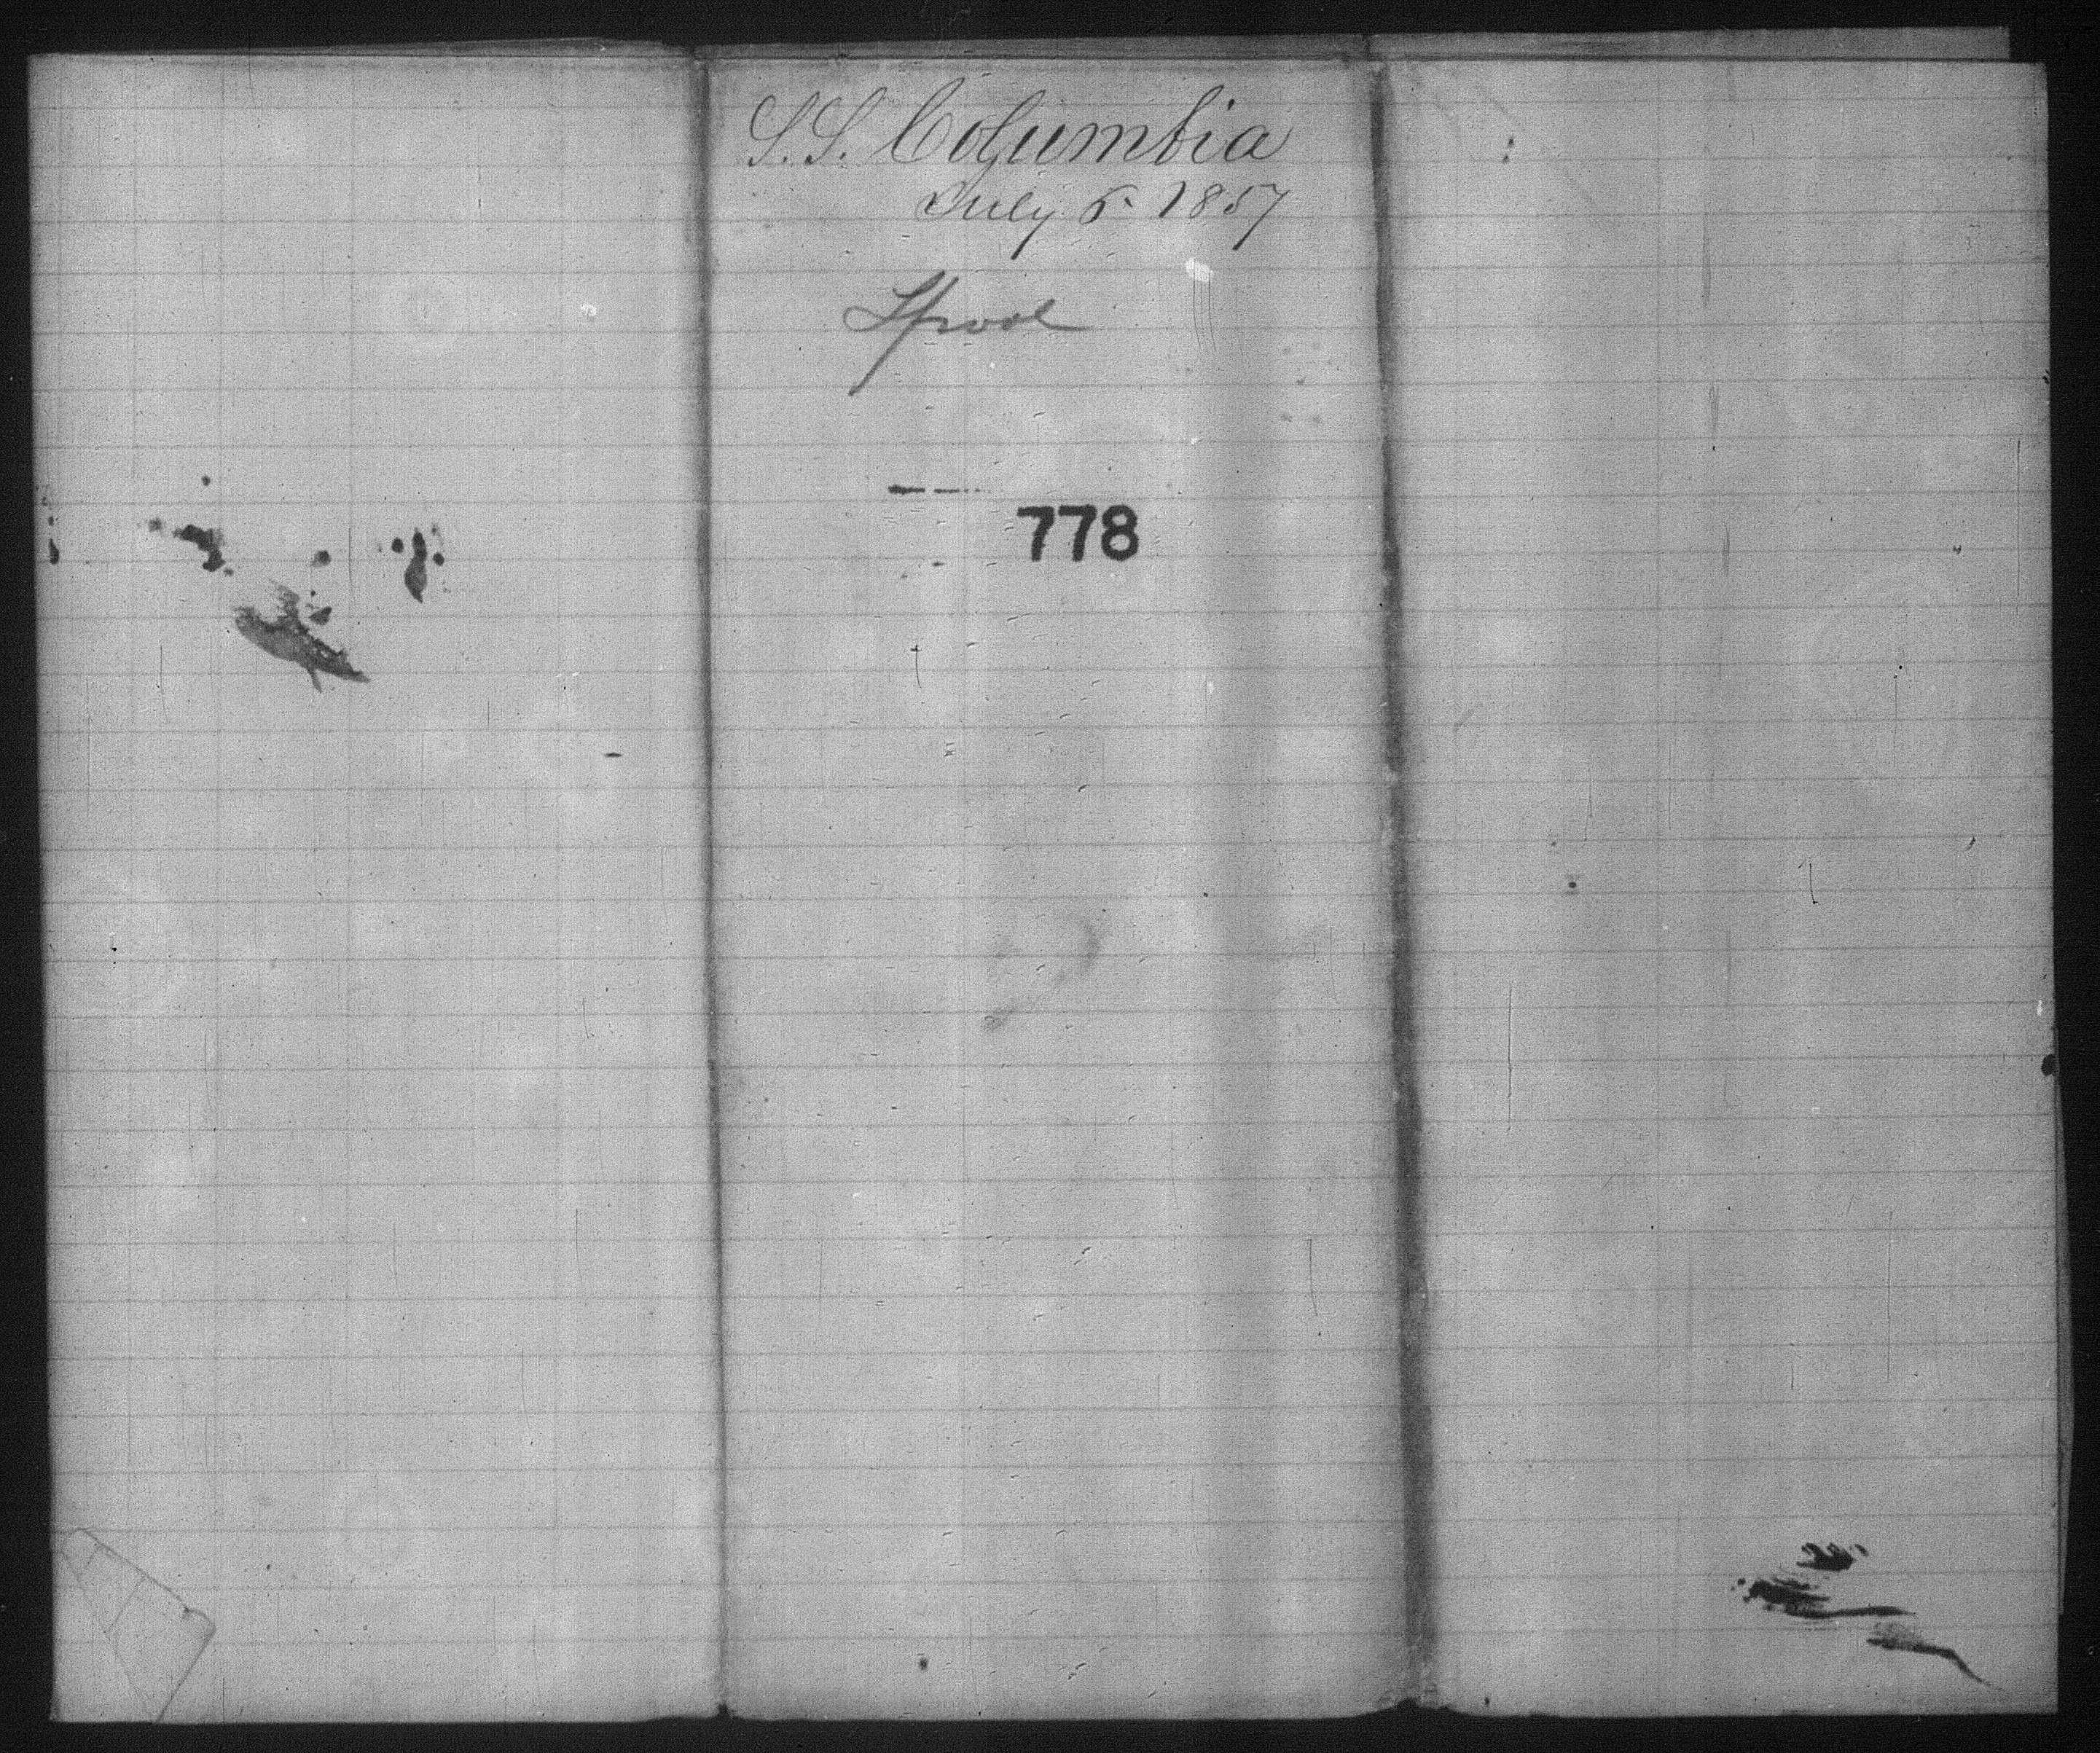 S.S. Columbia
July 6. 1857
Lpool
778